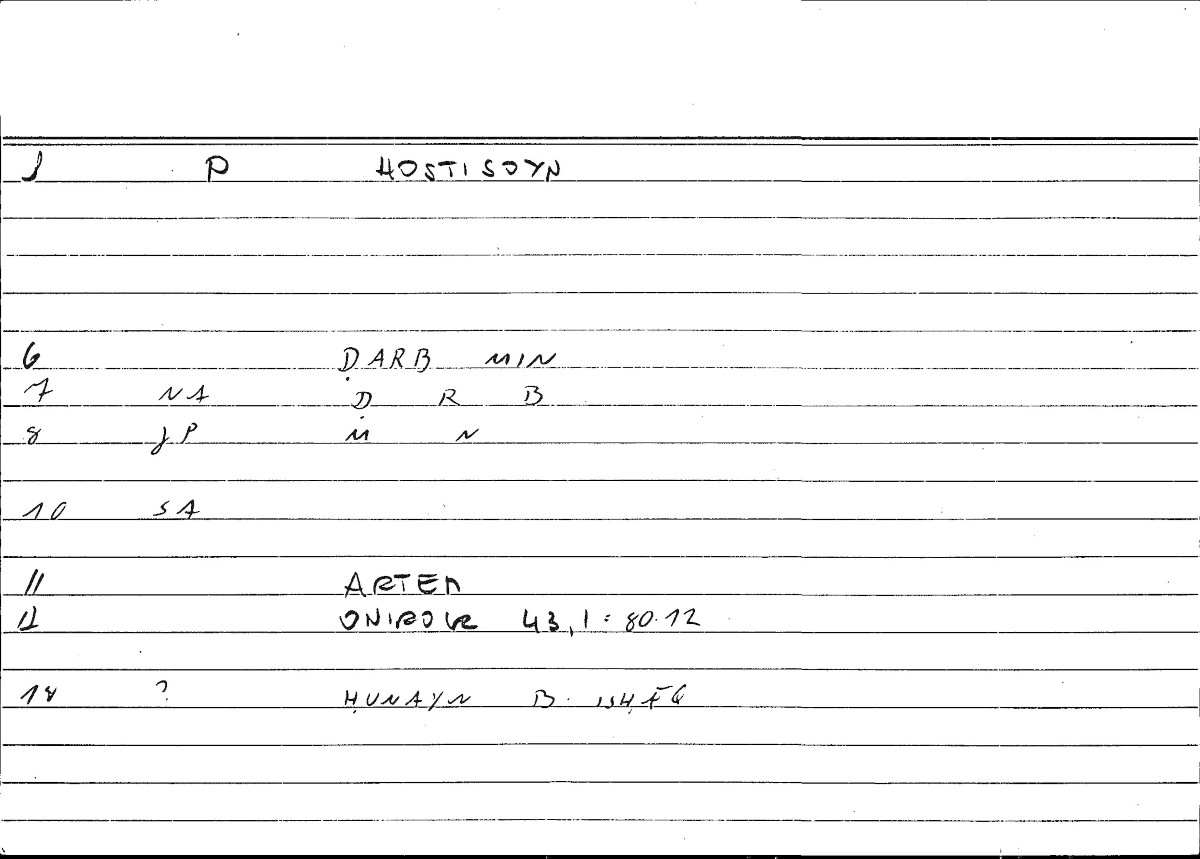 1 P HOSTISOYN
6 ḌARB MIN
7 NA Ḍ R B
8 JP M N
10 SA
11 ARTEM
12 ONIROKR 43,1 = 80.12
18 ? ḤUNAYN B. ISḤĀQ